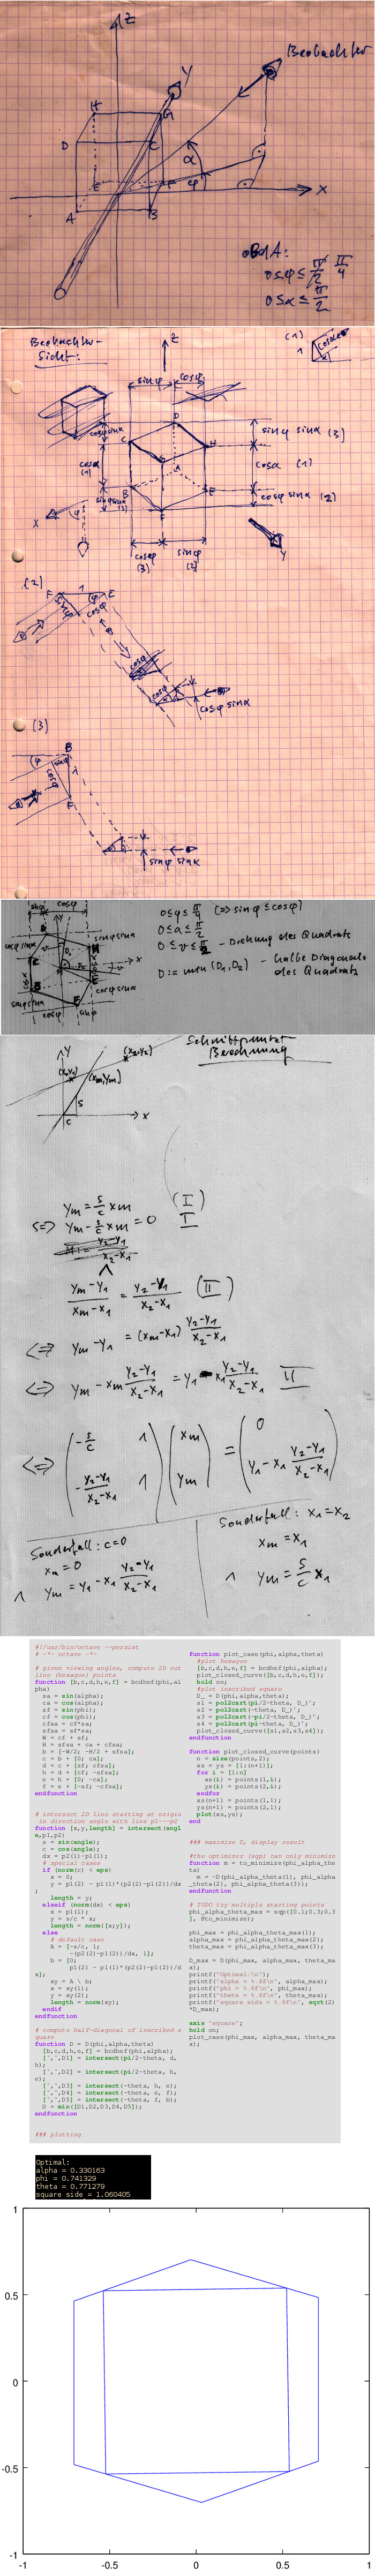 Z
Y
Beobachter
H
G
D
C
α
E
F
φ
X
A
B
oBdA:
0≤φ≤π/2 π/4
0≤α≤π/2
Beobachter-
Sicht:
Z
(1)
sinφ cosφ
cosφ sinα
sinφ sinα (3)
cosα (1)
cosφ sinα (2)
cosφ (3)
sinφ (2)
X
Y
(2)
F 1 E
sinφ
cosφ
cosφ sinα
(3)
B
φ
sinφ
cosφ
F
sinφ sinα
sinφ cosφ
0≤φ≤π/4 (⇔ sinφ ≤ cosφ)
0≤α≤π/2
0≤ν≤π/2 - Drehung des Quadrats
D := min(D1,D2) - halbe Diagonale
des Quadrats
Schnittpunkt
Berechnung
Y
(x2,y2)
(x1,y1)
(xm,ym)
S
C
X
ym = s/c xm (I)
⇔ ym - s/c xm = 0 I
∧
(ym-y1)/(xm-x1) = (y2-y1)/(x2-x1) (II)
⇔ ym-y1 = (xm-x1) (y2-y1)/(x2-x1)
⇔ ym - xm (y2-y1)/(x2-x1) = y1 - x1 (y2-y1)/(x2-x1) II
⇔ (-s/c 1; -(y2-y1)/(x2-x1) 1) (xm; ym) = (0; y1-x1 (y2-y1)/(x2-x1))
Sonderfall: c=0
xm = 0
∧ ym = y1 - x1 (y2-y1)/(x2-x1)
Sonderfall: x1=x2
xm = x1
∧ ym = s/c x1
#!/usr/bin/octave --persist
# -*- octave -*-
# given viewing angles, compute 2D out
line (hexagon) points
function [b,c,d,h,e,f] = bcdhef(phi,al
pha)
sa = sin(alpha);
ca = cos(alpha);
sf = sin(phi);
cf = cos(phi);
cfsa = cf*sa;
sfsa = sf*sa;
W = cf + sf;
H = sfsa + ca + cfsa;
b = [-W/2; -H/2 + sfsa];
c = b + [0; ca];
d = c + [sf; cfsa];
h = d + [cf; -sfsa];
e = h + [0; -ca];
f = e + [-sf; -cfsa];
endfunction
# intersect 2D line starting at origin
in direction angle with line p1---p2
function [x,y,length] = intersect(angl
e,p1,p2)
s = sin(angle);
c = cos(angle);
dx = p2(1)-p1(1);
# special cases
if (norm(c) < eps)
x = 0;
y = p1(2) - p1(1)*(p2(2)-p1(2))/dx
;
length = y;
elseif (norm(dx) < eps)
x = p1(1);
y = s/c * x;
length = norm([x;y]);
else
# default case
A = [-s/c, 1;
-(p2(2)-p1(2))/dx, 1];
b = [0;
p1(2) - p1(1)*(p2(2)-p1(2))/d
x];
xy = A \ b;
x = xy(1);
y = xy(2);
length = norm(xy);
endif
endfunction
# compute half-diagonal of inscribed s
quare
function D = D(phi,alpha,theta)
[b,c,d,h,e,f] = bcdhef(phi,alpha);
[~,~,D1] = intersect(pi/2-theta, d,
h);
[~,~,D2] = intersect(pi/2-theta, h,
e);
[~,~,D3] = intersect(-theta, h, e);
[~,~,D4] = intersect(-theta, e, f);
[~,~,D5] = intersect(-theta, f, b);
D = min([D1,D2,D3,D4,D5]);
endfunction
### plotting
function plot_case(phi,alpha,theta)
#plot hexagon
[b,c,d,h,e,f] = bcdhef(phi,alpha);
plot_closed_curve([b,c,d,h,e,f]);
hold on;
#plot inscribed square
D_ = D(phi,alpha,theta);
s1 = pol2cart(pi/2-theta, D_)';
s2 = pol2cart(-theta, D_)';
s3 = pol2cart(-pi/2-theta, D_)';
s4 = pol2cart(pi-theta, D_)';
plot_closed_curve([s1,s2,s3,s4]);
endfunction
function plot_closed_curve(points)
n = size(points,2);
xs = ys = [1:(n+1)];
for i = [1:n]
xs(i) = points(1,i);
ys(i) = points(2,i);
endfor
xs(n+1) = points(1,1);
ys(n+1) = points(2,1);
plot(xs,ys);
end
### maximize D, display result
#the optimizer (sqp) can only minimize
function m = to_minimize(phi_alpha_the
ta)
m = -D(phi_alpha_theta(1), phi_alpha
_theta(2), phi_alpha_theta(3));
endfunction
# TODO try multiple starting points
phi_alpha_theta_max = sqp([0.1;0.3;0.3
], @to_minimize);
phi_max = phi_alpha_theta_max(1);
alpha_max = phi_alpha_theta_max(2);
theta_max = phi_alpha_theta_max(3);
D_max = D(phi_max, alpha_max, theta_ma
x);
printf("Optimal:\n");
printf("alpha = %.6f\n", alpha_max);
printf("phi = %.6f\n", phi_max);
printf("theta = %.6f\n", theta_max);
printf("square side = %.6f\n", sqrt(2)
*D_max);
axis "square";
hold on;
plot_case(phi_max, alpha_max, theta_ma
x);
Optimal:
alpha = 0.330163
phi = 0.741329
theta = 0.771279
square side = 1.060405
1
0.5
0
-0.5
-1
-1 -0.5 0 0.5 1